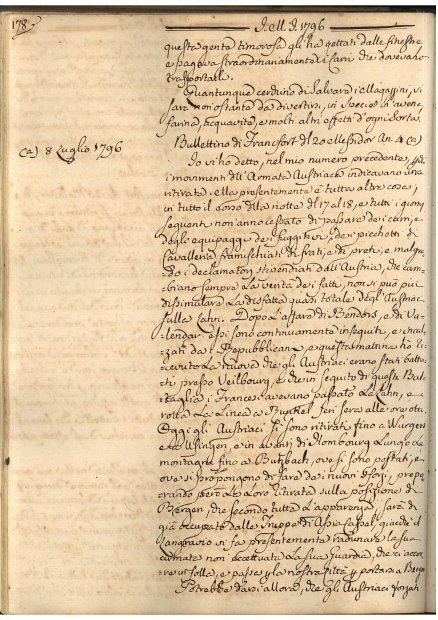 178
I. M. I. 1796
questa gente timorosa gli ha gettati dalle finestre
e pagava straordinariamente i Carri che dovevano
trasportarle.
Quantunque cerchino di salvare i Magazzini, vi
sarà non ostante da divertirsi, in specie in avena,
farina, acquavite, e molti altri effetti d'ogni sorta.
Bullettino di Francfort del 20 Messidor An. 4 (a)
(a) 8 Luglio 1796
Io vi ho detto, nel mio numero precedente, che
i movimenti dell'Armata Austriaca indicavano una
ritirata: ella presentemente è tutta altra cosa;
in tutto il corso della notte del 17 al 18, e tutti i giorni
seguenti non anno cessato di passare dei carri, e
degli equipaggi dei fuggitivi, dei picchetti di
Cavalleria framischiati di frati, e di preti; e malgra-
do i declamatori stipendiati dall'Austria, che cam-
biano sempre la verità dei fatti, non si può più
dissimulare la disfatta quasi totale degl'Austriaci
sulla Lahn. Dopo l'affare di Bendors, e di Va-
lendar essi sono continuamente inseguiti, e incal-
zati da i Repubblicani, e questa mattina ho ri-
cevuto la nuova che gli Austriaci erano stati battu-
ti presso Veilbourg, e che in seguito di questa Bat-
taglia i Francesi avevano passato la Lahn, e
rotta la linea a Runkel Jeri sera alle ore otto.
Oggi gli Austriaci si sono ritirati fino a Wurges
e Usingen, e in avanti di Hombourg lungo le
montagne fino a Butzbach, ove si sono postati, e
ove si propongono di fare dei nuovi sforzi, prepa-
rando però la loro ritirata sulla posizione di
Bergen, che secondo tutta l'apparenza, sarà di
già occupata dalle Truppe di Assia-Cassel, giacché il
Langravio vi fa presentemente radunare la sua
Armata non eccettuata la sua Guardia, che vi accor-
re in folla, e passa la nostra Città per portarsi a Bergen
Potrebbe darsi allora, che gli Austriaci forzati